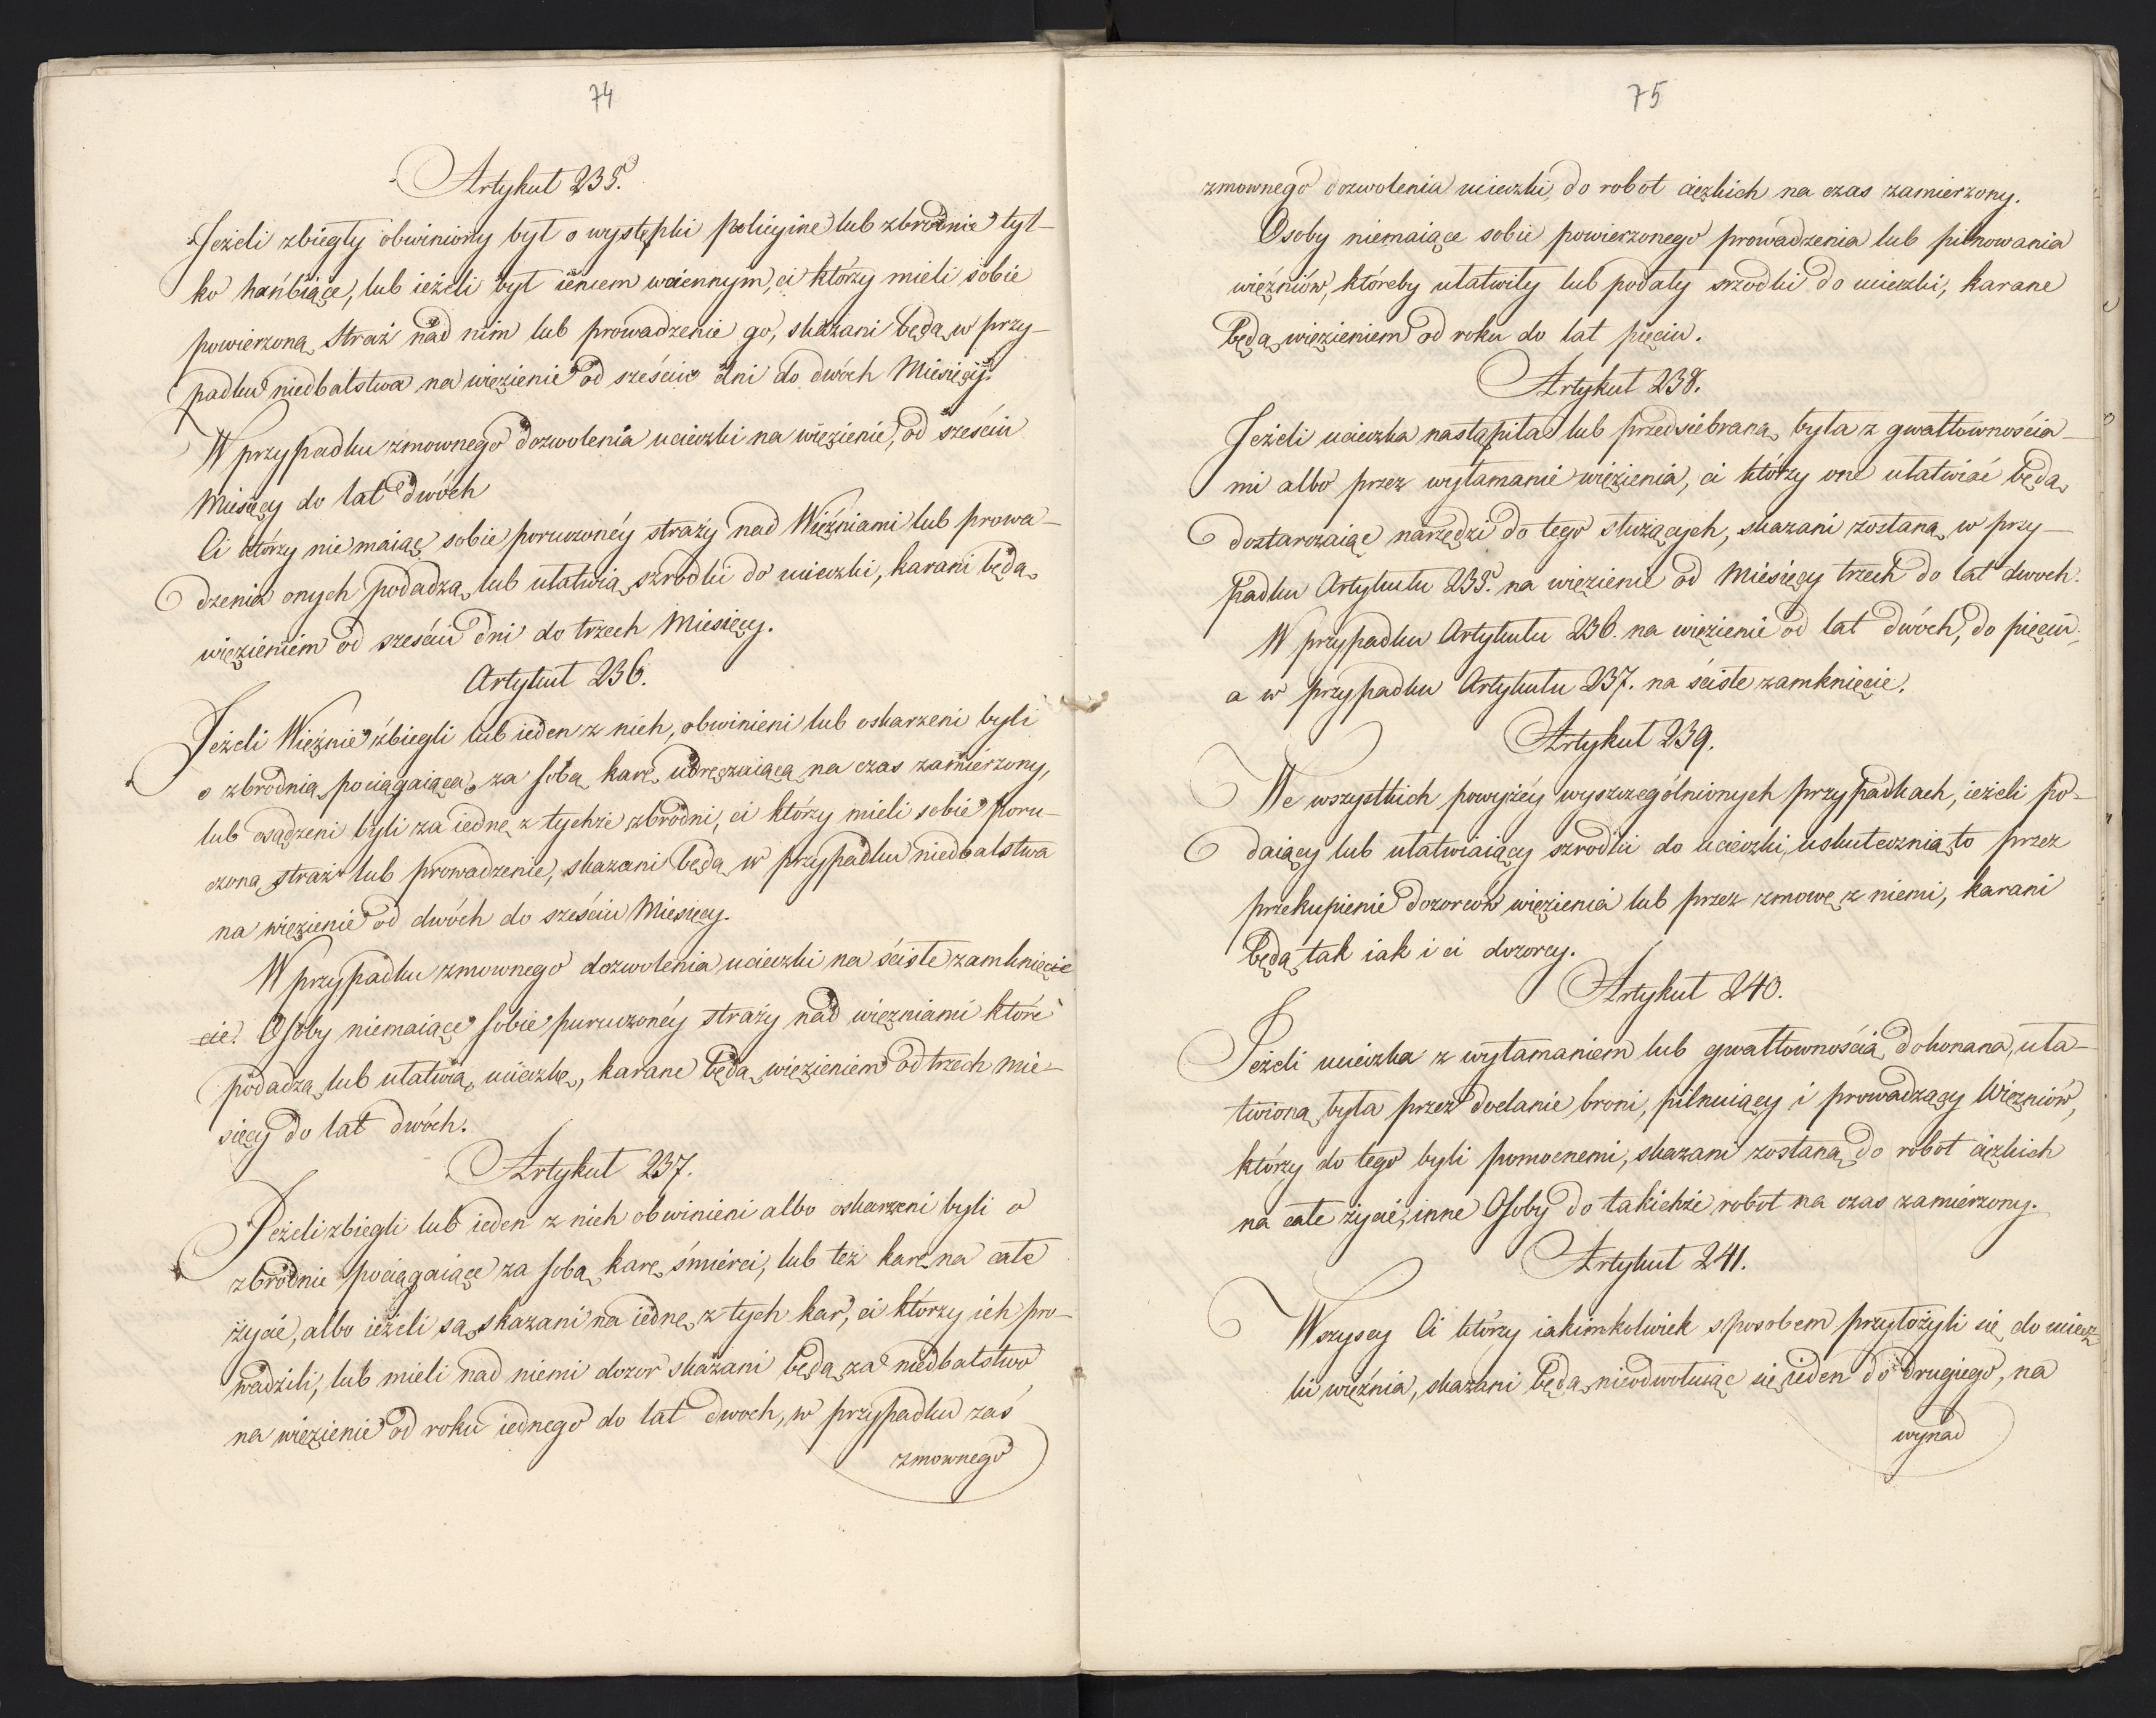 74
Artykuł 235.
Jeżeli zbiegły obwiniony był o występki policyine lub zbrodnie tyl-
ko hańbiące, lub ieżeli był ieńcem woiennym, ci którzy mieli sobie
powierzoną straż nad nim lub prowadzenie go, skazani będą w przy-
padku niedbalstwa na więzienie od sześciu dni do dwóch Miesięcy.
W przypadku zmownego dozwolenia ucieczki na więzienie, od sześciu
Miesięcy do lat dwóch
Ci którzy nie maiąc sobie poruczonéy straży nad Więźniami lub prowa-
dzenia onych podadzą lub ułatwią szrodki do ucieczki, karani będą
więzieniem od sześciu dni do trzech Miesięcy.
Artykuł 236.
Jeżeli Więźnie zbiegli lub ieden z nich, obwinieni lub oskarżeni byli
o zbrodnią pociągaiącą za sobą karę udręczaiącą na czas zamierzony,
lub osądzeni byli za iednę z tychże zbrodni, ci którzy mieli sobie poru-
czoną straż lub prowadzenie, skazani będą w przypadku niedbalstwa
na więzienie od dwóch do sześciu Miesięcy.
W przypadku zmownego dozwolenia ucieczki na ścisłe zamknięcie
cie. Osoby niemaiące sobie puruczonéy straży nad więzniami które
podadzą lub ułatwią ucieczkę, karane będą więzieniem od trzech mie-
sięcy do lat dwóch.
Artykuł 237.
Jeżeli zbiegli lub ieden z nich obwinieni albo oskarżeni byli o
zbrodnie pociągaiące za sobą karę śmierci, lub też karę na całe
życie, albo ieżeli są skazani na iednę z tych kar, ci którzy ich pro-
wadzili, lub mieli nad niemi dozor skazani będą za niedbalstwo
na więzienie od roku iednego do lat dwoch, w przypadku zaś
zmownego
75
zmownego dozwolenia ucieczki, do robot ciężkich na czas zamierzony.
Osoby niemaiące sobie powierzonego prowadzenia lub pilnowania
więźniów, któreby ułatwiły lub podały srzodki do ucieczki, karane
będą więzieniem od roku do lat pięciu.
Artykuł 238.
Jeżeli ucieczka nastąpiła lub przedsiebraną była z gwałtownościa-
mi albo przez wyłamanie więzienia, ci którzy one ułatwiać będą
dostarczaiąc narzędzi do tego służących, skazani zostaną w przy-
padku Artykułu 235. na więzienie od Miesięcy trzech do lat dwoch.
W przypadku Artykułu 236. na więzienie od lat dwóch, do pięciu;
a w przypadku Artykułu 237. na ścisłe zamknięcie.
Artykuł 239.
We wszystkich powyżéy wyszczególnionych przypadkach, ieżeli po-
daiący lub ułatwiaiący szrodki do ucieczki, uskutecznią to przez
przekupienie dozorców więzienia lub przez zmowę z niemi, karani
będą tak iak i ci dozorcy.
Artykuł 240.
Jeżeli ucieczka z wyłamaniem lub gwałtownością dokonana, uła-
twioną była przez dodanie broni, pilnuiący i prowadzący Więzniów,
którzy do tego byli pomocnemi, skazani zostaną do robot ciężkich
na całe życie, inne Osoby do takichże robot na czas zamierzony.
Artykuł 241.
Wszyscy Ci którzy iakimkolwiek sposobem przyłożyli się do uciecz-
ki więźnia, skazani będą nieodwołuiąc się ieden do drugiego, na
wynad